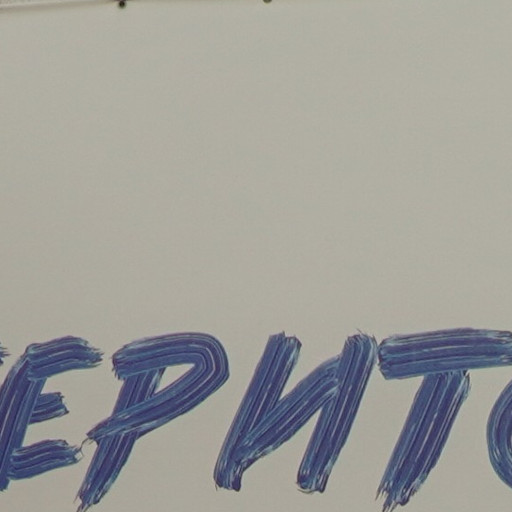 ЕРИТО